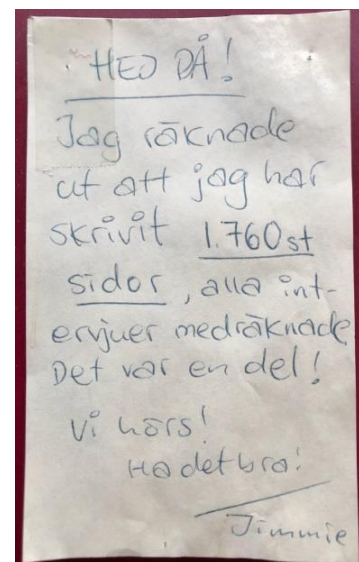 HEJ DÅ!
Jag räknade
ut att jag har
skrivit 1.760 st
sidor, alla int-
ervjuer medräknade
Det var en del!
Vi hörs!
Ha det bra!
Jimmie